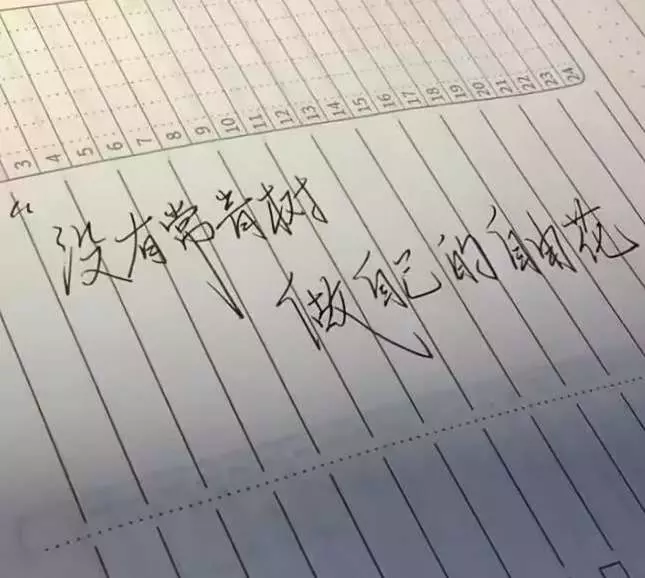 3 4 5 6 7 8 9 10 11 12 13 14 15 16 17 18 19 20 21 22 23 24
“没有常青树
做自己的自由花